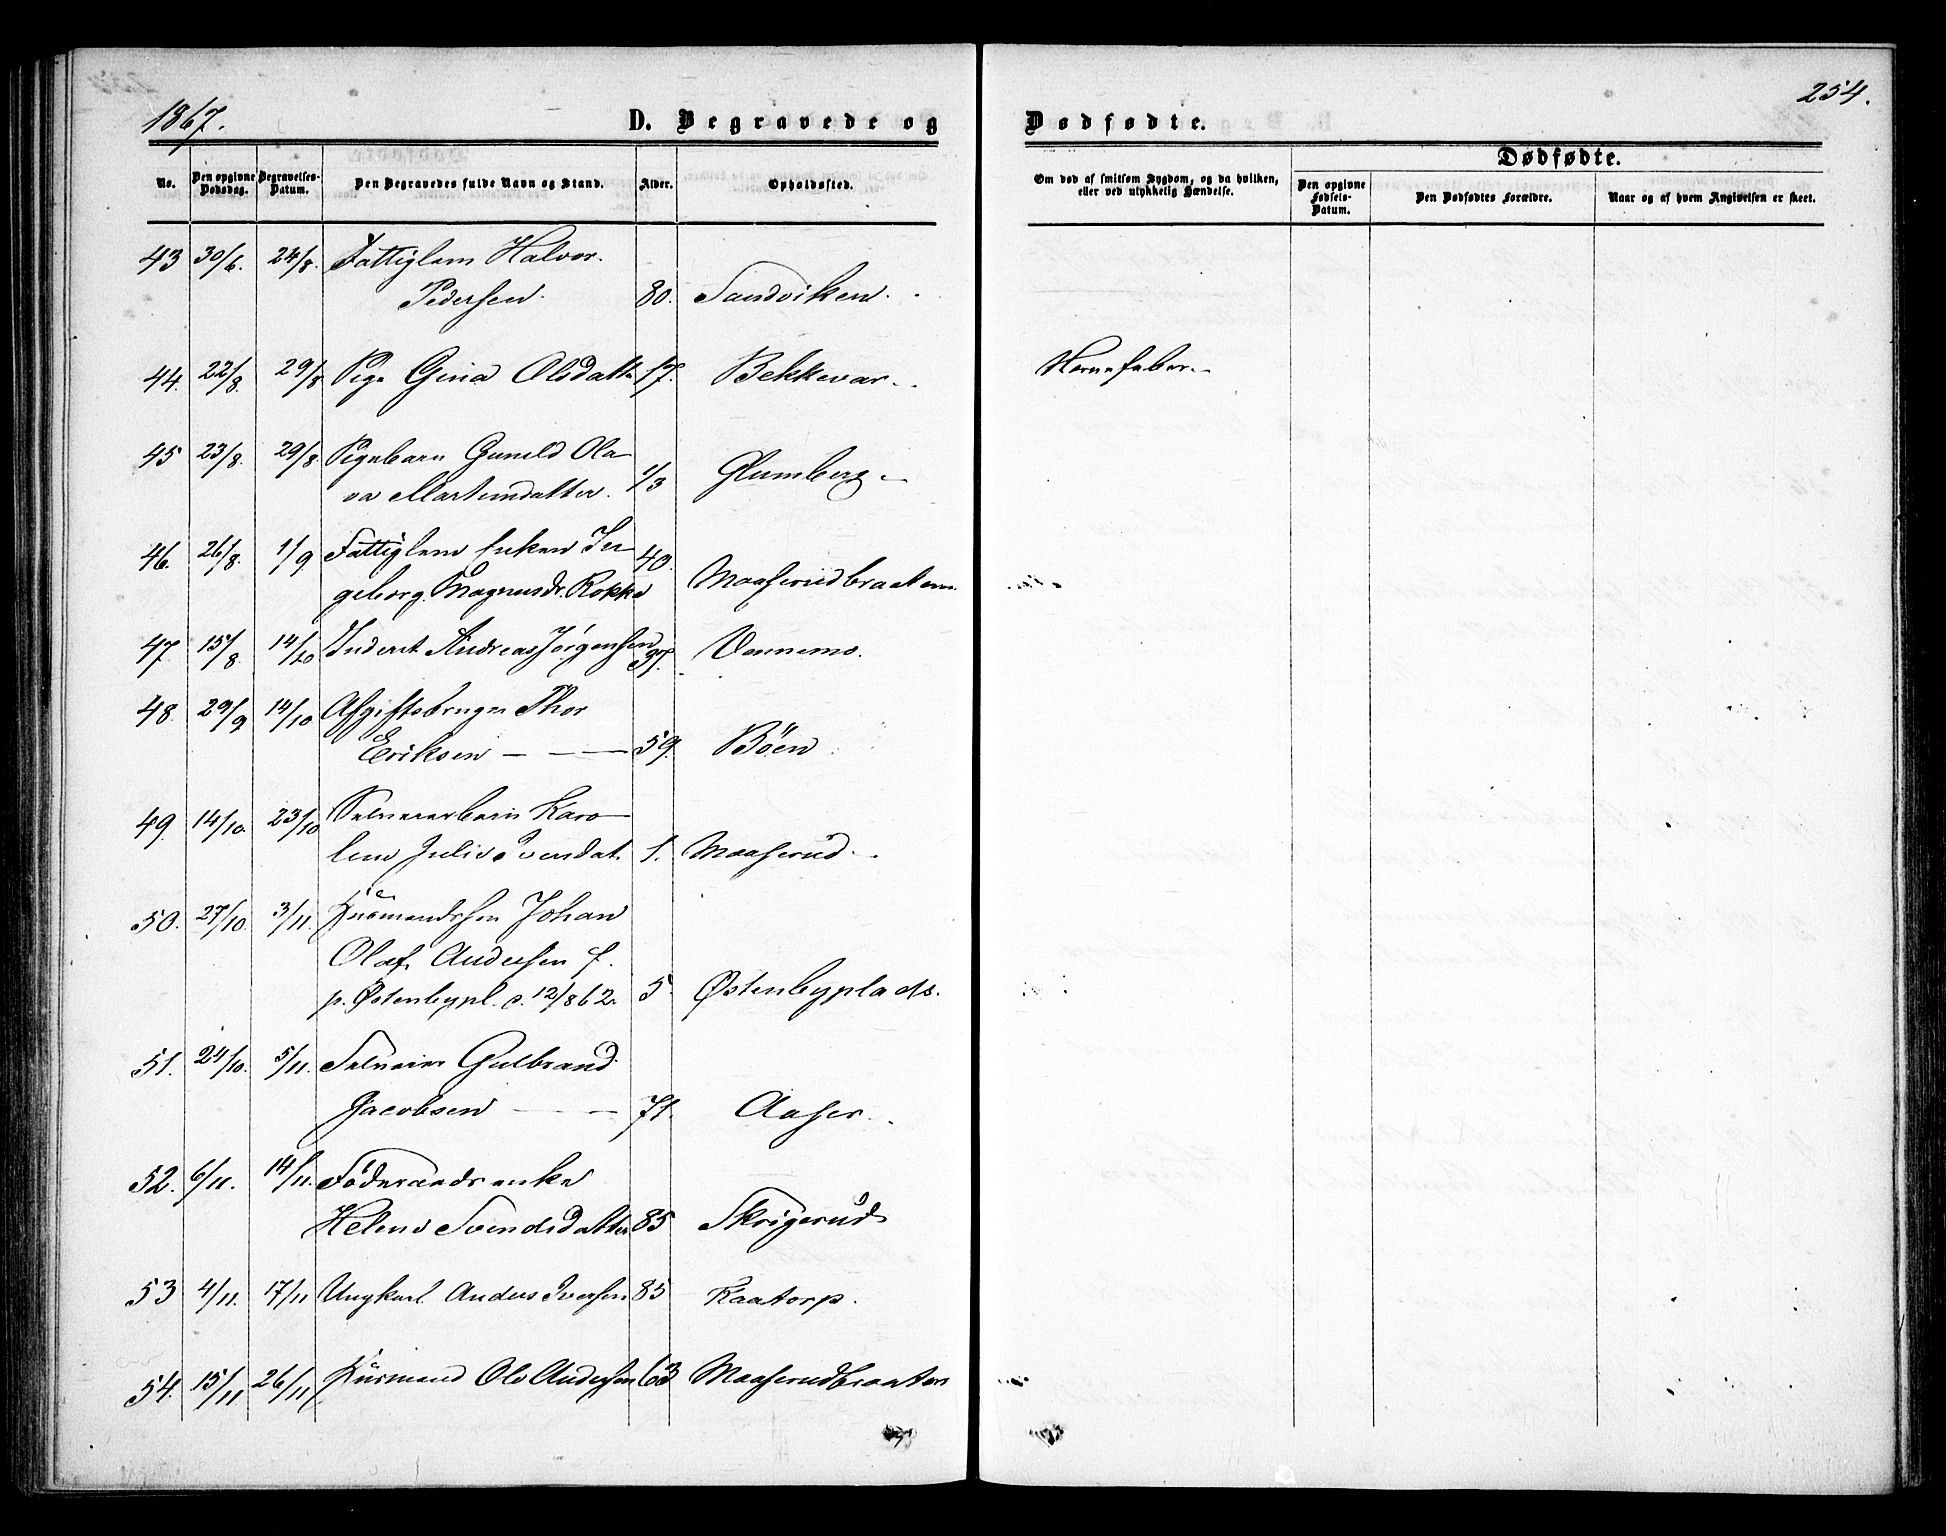 1867.
254.
D. Begravede og Dødfødte.
Dødfødte.
No. Den opgivne Dødsdag. Begravelses-Datum. Den Begravedes fulde Navn og Stand. Alder. Opholdssted. Om død af smitsom Sygdom, og da hvilken, eller ved ulykkelig Hændelse. Den opgivne Fødsels-Datum. Den Dødfødtes Forældre. Naar og af hvem Angivelsen er skeet.
43 30/6. 24/8. Fattiglem Halvor
Pedersen. 80. Sandviken.
44. 22/8. 29/8 Pige Gina Olsdatter 17. Bekkevar.
45 23/8. 29/8. Pigebarn Guneld Ola
va Martinsdatter. 1/3 Glumberg
46. 26/8. 1/9. Fattiglem Enken In 40.
geborg Magnusdr. Rokke Maaserudbraaten
47. 15/8. 14/10 Inderst Andreas Jørgensen Vennemo.
48. 29/9 14/10 Afgiftsbruger Thor
Eriksen — — 59. Böen
49. 14/10. 23/10 Selveierbarn Karo
line Julie Iversdat. 1. Maaserud.
50. 27/10. 3/11. Husmandssøn Johan
Olaf Andersen f.
p. Østenbypl. d. 12/8 62. 5. Østenbyplads.
51. 24/10. 5/11. Selveier Gulbrand
Jacobsen — — 71. Aaser.
52. 6/11. 14/11. Föderaadsenke
Helene Svendsdatter 85 Skrigerud
53 4/11. 17/11 Ungkarl Anders Iversen 85 Kaatorp.
54. 15/11 26/11 Husmand Ole Andersen 63 Maaserudbraaten